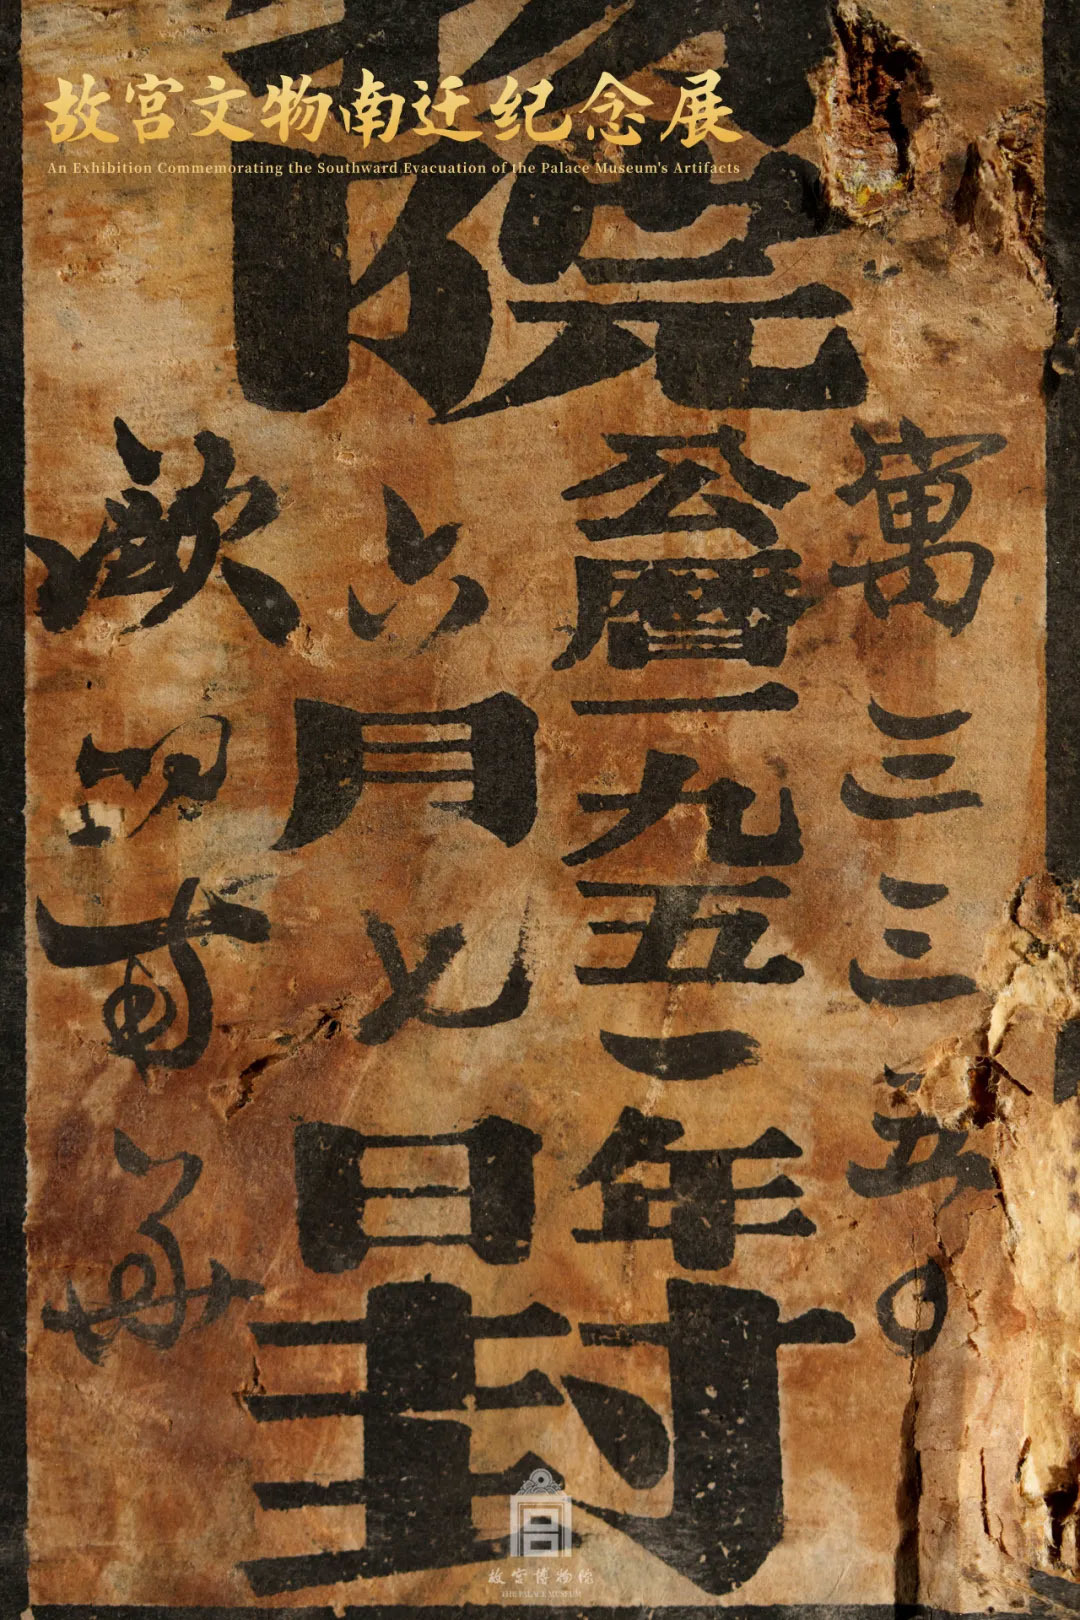 故宫文物南迁纪念展
An Exhibition Commemorating the Southward Evacuation of the Palace Museum's Artifacts
院
寓三三五0
公曆一九五一年
六月七日
封
故宫博物院
THE PALACE MUSEUM